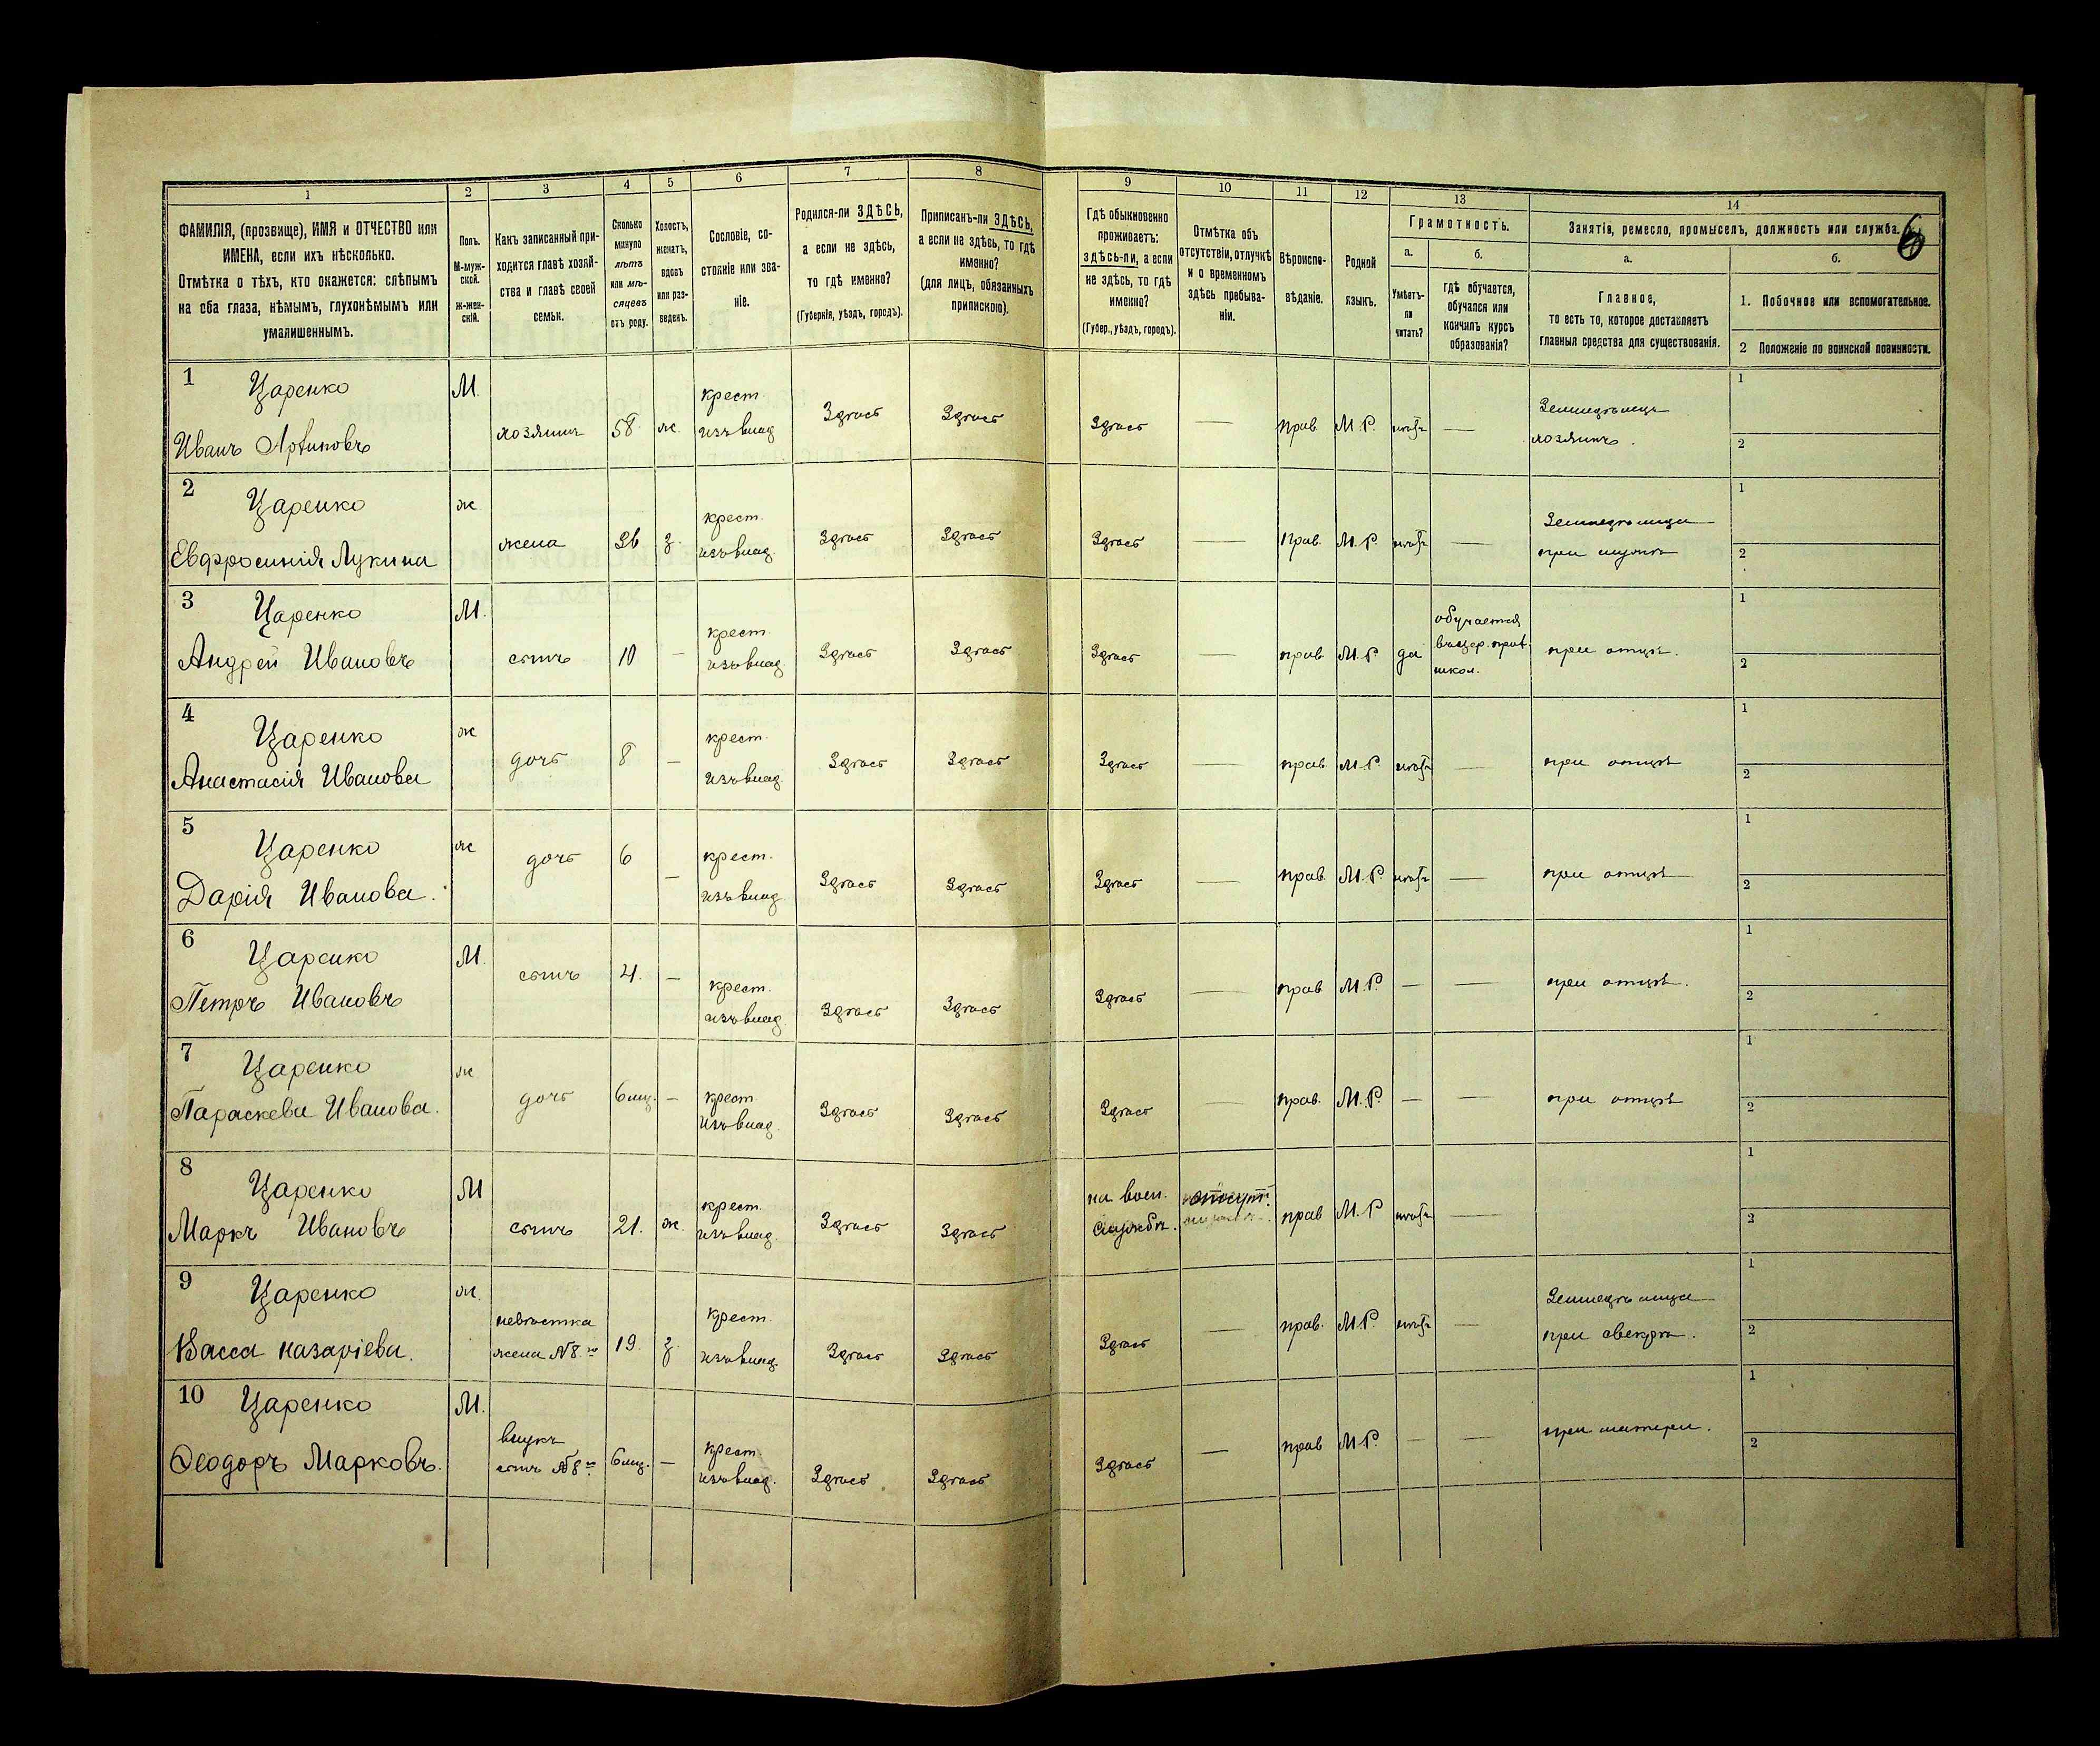 1 2 3 4 5 6 7 8 9 10 11 12 13 14
ФАМИЛІЯ, (прозвище), ИМЯ и ОТЧЕСТВО или
ИМЕНА, если ихъ нѣсколько.
Отмѣтка о тѣхъ, кто окажется: слѣпымъ
на оба глаза, нѣмымъ, глухонѣмымъ или
умалишеннымъ.
Полъ.
М-муж-
ской.
Ж-жен-
скій.
Какъ записанный при-
ходится главѣ хозяй-
ства и главѣ своей
семьи.
Сколько
минуло
лѣтъ
или мѣ-
сяцевъ
отъ роду.
Холостъ,
женатъ,
вдовъ
или раз-
веденъ.
Сословіе, со-
стояніе или зва-
ніе.
Родился-ли ЗДѢСЬ,
а если не здѣсь,
то гдѣ именно?
(Губернія, уѣздъ, городъ).
Приписанъ-ли ЗДѢСЬ,
а если не здѣсь, то гдѣ
именно?
(для лицъ, обязанныхъ
припискою).
Гдѣ обыкновенно
проживаетъ:
здѣсь-ли, а если
не здѣсь, то гдѣ
именно?
(Губер., уѣздъ, городъ).
Отмѣтка объ
отсутствіи, отлучкѣ
и о временномъ
здѣсь пребыва-
ніи.
Вѣроиспо-
вѣданіе.
Родной
языкъ.
Грамотность.
а.
Умѣетъ-
ли
читать?
б.
гдѣ обучается,
обучался или
кончилъ курсъ
образованія?
Занятія, ремесло, промыселъ, должность или служба.
6
а.
Главное,
то есть то, которое доставляетъ
главныя средства для существованія.
б.
1. Побочное или вспомогательное.
2 Положеніе по воинской повинности.
1 Царенко М. крест. Здѣсь Здѣсь Здѣсь — прав. М.Р. нѣтъ — Земледѣлецъ 1
Иванъ хозяинъ 58 ж. изъ влад. хозяинъ. 2
2 Царенко ж крест. Земледѣлица 1
Евфросинія Лукина жена 36 з. изъ влад. Здѣсь Здѣсь Здѣсь — Прав. М.Р. нѣтъ — при мужѣ 2
3 Царенко М. крест. обучается 1
Андрей Ивановъ сынъ 10 — изъ влад. Здѣсь Здѣсь Здѣсь — прав. М.Р да въ цер. прих. при отцѣ. 2
школ.
4 Царенко ж крест. 1
Анастасія Иванова дочь 8 — изъ влад. Здѣсь Здѣсь Здѣсь — прав. М.Р. нѣтъ — при отцѣ 2
5 Царенко ж дочь 6 крест. 1
Дарія Иванова. — изъ влад. Здѣсь Здѣсь Здѣсь — прав. М.Р. нѣтъ — при отцѣ 2
6 Царенко М. сынъ 4. — крест. 1
Петръ Ивановъ изъ влад. Здѣсь Здѣсь Здѣсь — прав М.Р. — — при отцѣ. 2
7 Царенко ж 1
Параскева Иванова. дочь 6 мц. — крест. изъ влад. Здѣсь Здѣсь Здѣсь — прав. М.Р. — — при отцѣ 2
8 Царенко М крест. на воен. 1
Маркъ Ивановъ сынъ 21. ж. изъ влад. Здѣсь Здѣсь службѣ. прав М.Р нѣтъ — 2
9 Царенко ж. невѣстка крест. Земледѣлица 1
Васса Назаріева. жена №8.го 19. з. изъ влад. Здѣсь Здѣсь Здѣсь — прав. М.Р. нѣтъ — при свекрѣ. 2
10 Царенко М. внукъ крест. 1
Ѳеодоръ Марковъ. сынъ №8го 6 мц. — изъ влад. Здѣсь Здѣсь Здѣсь — прав М.Р. — — при матери. 2